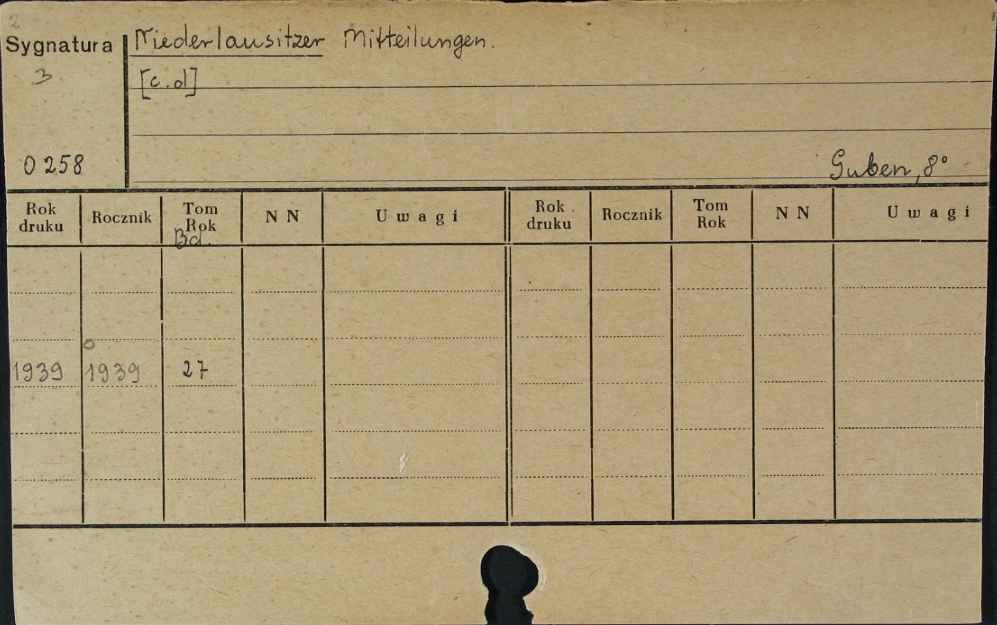 2
Sygnatura Niederlausitzer Mitteilungen.
3 [c.d]
0258 Guben, 8°
Rok druku Rocznik Tom Rok Bd. NN Uwagi Rok druku Rocznik Tom Rok NN Uwagi
1939 1939 27